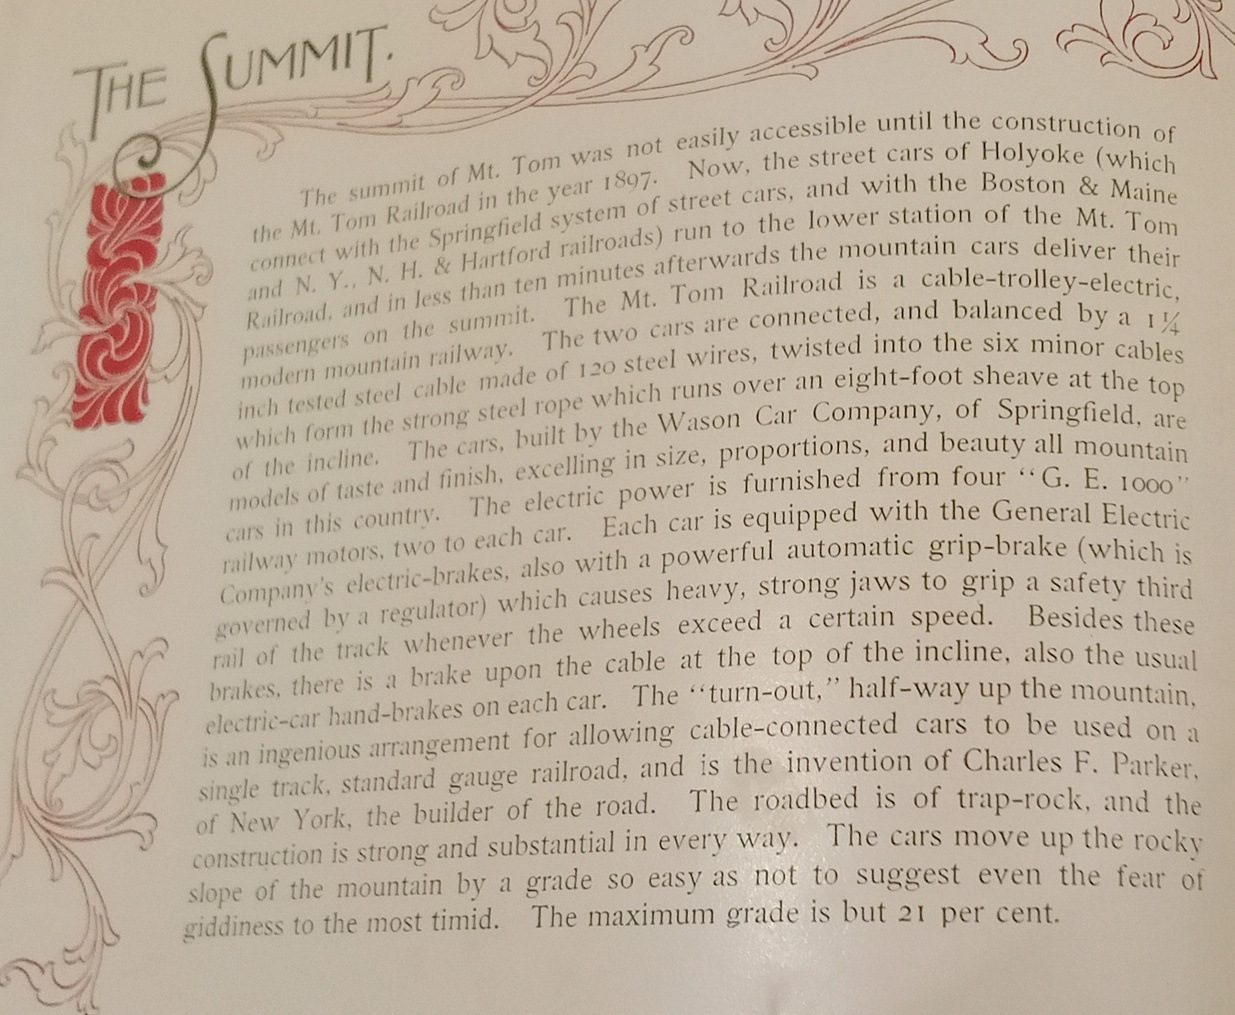 THE SUMMIT.
The summit of Mt. Tom was not easily accessible until the construction of
the Mt. Tom Railroad in the year 1897. Now, the street cars of Holyoke (which
connect with the Springfield system of street cars, and with the Boston & Maine
and N. Y., N. H. & Hartford railroads) run to the lower station of the Mt. Tom
Railroad, and in less than ten minutes afterwards the mountain cars deliver their
passengers on the summit. The Mt. Tom Railroad is a cable-trolley-electric,
modern mountain railway. The two cars are connected, and balanced by a 1¼
inch tested steel cable made of 120 steel wires, twisted into the six minor cables
which form the strong steel rope which runs over an eight-foot sheave at the top
of the incline. The cars, built by the Wason Car Company, of Springfield, are
models of taste and finish, excelling in size, proportions, and beauty all mountain
cars in this country. The electric power is furnished from four "G. E. 1000"
railway motors, two to each car. Each car is equipped with the General Electric
Company's electric-brakes, also with a powerful automatic grip-brake (which is
governed by a regulator) which causes heavy, strong jaws to grip a safety third
rail of the track whenever the wheels exceed a certain speed. Besides these
brakes, there is a brake upon the cable at the top of the incline, also the usual
electric-car hand-brakes on each car. The "turn-out," half-way up the mountain,
is an ingenious arrangement for allowing cable-connected cars to be used on a
single track, standard gauge railroad, and is the invention of Charles F. Parker,
of New York, the builder of the road. The roadbed is of trap-rock, and the
construction is strong and substantial in every way. The cars move up the rocky
slope of the mountain by a grade so easy as not to suggest even the fear of
giddiness to the most timid. The maximum grade is but 21 per cent.